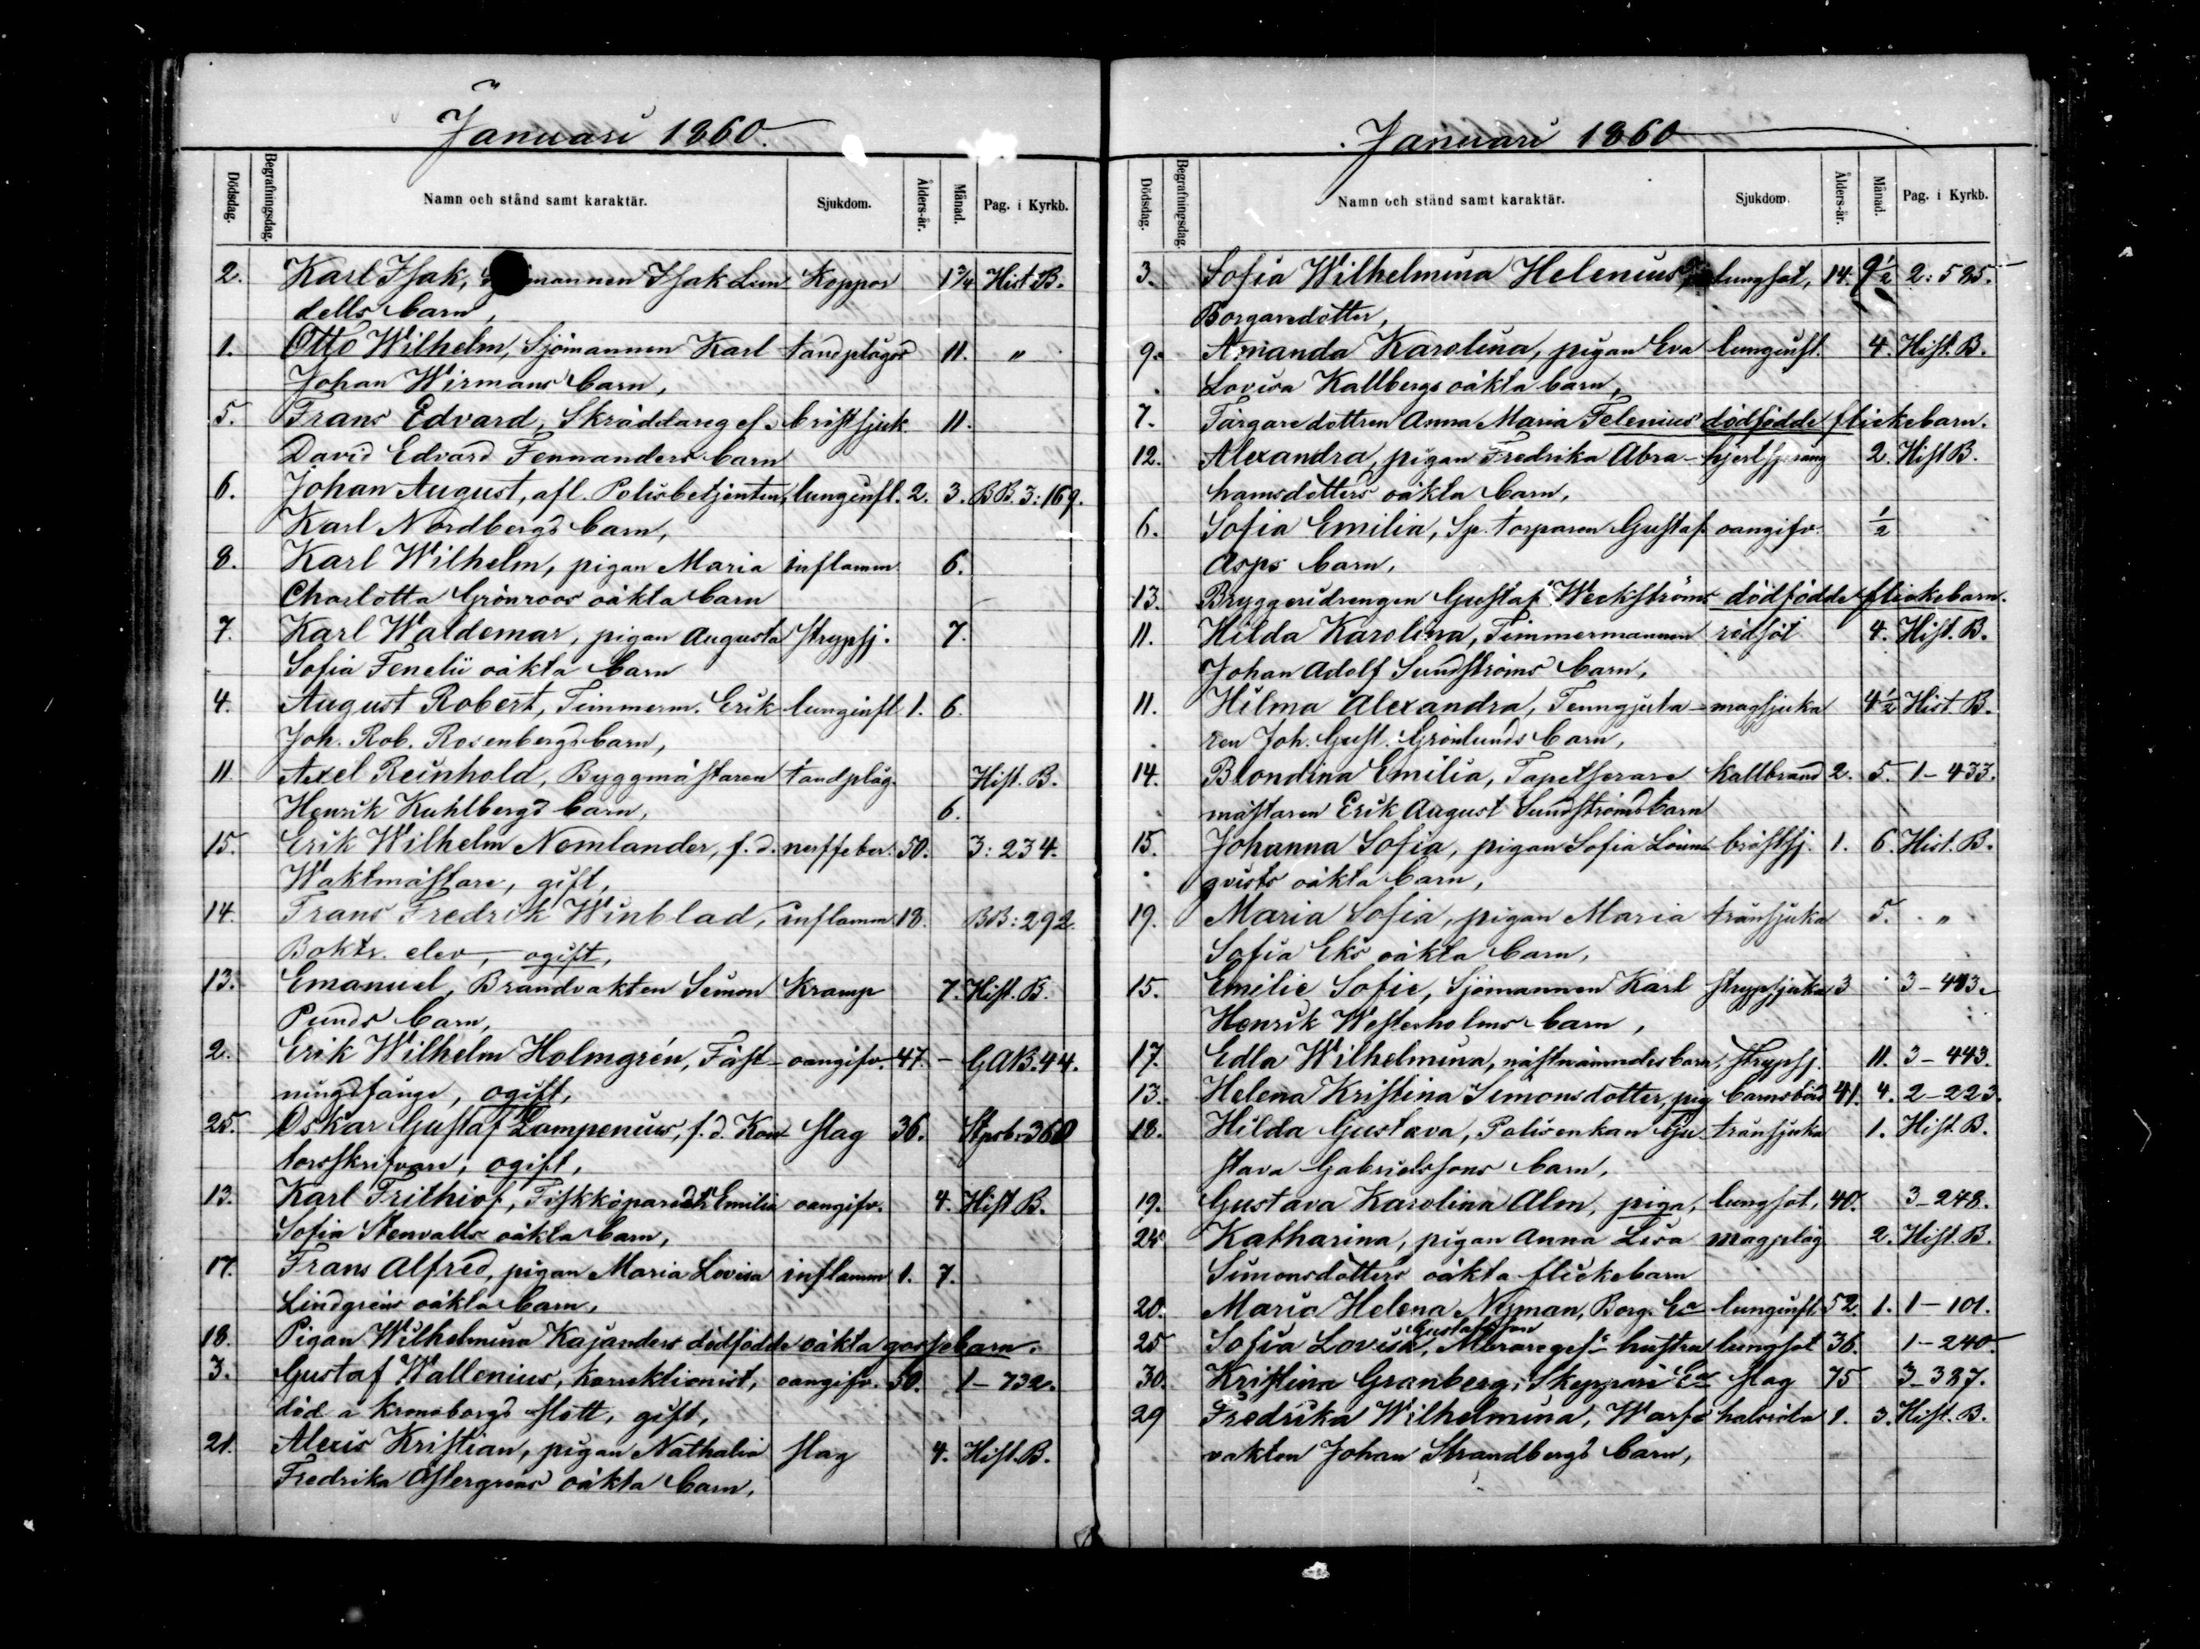 Januari 1860.
Dödsdag. Begrafningsdag. Namn och stånd samt karaktär. Sjukdom. Ålders-år. Månad. Pag. i Kyrkb.
2. Karl Isak, mannen Isak Lun- Koppor 1 3/4 Hist. B.
dells barn,
1. Otto Wilhelm, Sjömannen Karl tandplågor 11. "
Johan Wirmans barn,
5. Frans Edvard, Skräddareges. bristsjuk. 11.
David Edvard Fennanders barn
6. Johan August, afl. Polisbetjenten, lunginfl. 2. 3. BB. 3: 169.
Karl Nordbergs barn,
8. Karl Wilhelm, pigan Maria inflamm. 6.
Charlotta Grönroos oäkta barn
7. Karl Waldemar, pigan Augusta strypsj. 7.
Sofia Fenelii oäkta barn
4. August Robert, Timmerm. Erik lunginfl. 1. 6.
Joh. Rob. Rosenbergs barn,
11 Axel Reinhold, Byggmästaren tandplåg. Hist. B.
Henrik Kuhlbergs barn, 6.
15. Erik Wilhelm Nemlander, f. d. nerffeber. 50. 3: 234.
Waktmästare, gift,
14. Frans Fredrik Winblad, inflamm. 18. BB: 292.
Boktr. elev, ogift,
13. Emanuel, Brandvakten Simon Kramp 7. Hist. B.
Punds barn,
2. Erik Wilhelm Holmgrén, Fäst- oangifv. 47. - GAB. 44.
ningsfånge, ogift,
25. Oskar Gustaf Lampenius, f. d. Kon- slag 36. 360
torsskrifvare, ogift,
13. Karl Frithiof, Fiskköparedtr Emilia oangifv. 4. Hist. B.
Sofia Stenvalls oäkta barn,
17. Frans Alfred, pigan Maria Lovisa inflamm. 1. 7.
Lindgréns oäkta barn,
18. Pigan Wilhelmina Kajanders dödfödde oäkta gossebarn.
3. Gustaf Wallenius, korrektionist, oangifv. 50. 1-732.
död å Kronoborgs slott, gift,
21. Alexis Kristian, pigan Nathalia slag 4. Hist. B.
Fredrika Östergréns oäkta barn,
Januari 1860
Dödsdag. Begrafningsdag. Namn och stånd samt karaktär. Sjukdom. Ålders-år. Månad. Pag. i Kyrkb.
3. Sofia Wilhelmina Helenius, lungsot, 14. 9 1/2 2: 585.
Borgaredotter,
9. Amanda Karolina, pigan Eva lunginfl. 4. Hist. B.
Lovisa Kallbergs oäkta barn,
7. Färgaredottren Anna Maria Felenius dödfödde flickebarn.
12. Alexandra, pigan Fredrika Abra- hjertspräng 2. Hist B.
hamsdotters oäkta barn,
6. Sofia Emilia, Sp. torparen Gustaf oangifv. 1/2
Asps barn,
13. Bryggeridrengen Gustaf Weckströms dödfödde flickebarn.
11. Hilda Karolina, Timmermannen rödsot 4. Hist. B.
Johan Adolf Sundströms barn,
11. Hilma Alexandra, Tenngjuta- magsjuka 4 1/2 Hist. B.
ren Joh. Gust. Grönlunds barn,
14. Blondina Emilia, Tapetserare kallbrand 2. 5. 1-433.
mästaren Erik August Sundströms barn
15. Johanna Sofia, pigan Sofia Lönn- bröstsj. 1. 6. Hist. B.
qvists oäkta barn,
19. Maria Sofia, pigan Maria tränsjuka 5. "
Sofia Eks oäkta barn,
15. Emilie Sofie, Sjömannen Karl strypsjuka 3 3-443.
Henrik Westerholms barn,
17. Edla Wilhelmina, nästnämndes barn, strypsj. 11. 3-443.
13. Helena Kristina Simonsdotter, pig barnsbörd 41. 4. 2-223.
18. Hilda Gustava, Polisenkan Gu- tränsjuka 1. Hist. B.
stava Gabrielssons barn,
19. Gustava Karolina Alm, piga, lungsot, 40. 3-248.
24 Katharina, pigan Anna Lisa magplåg 2. Hist. B.
Simonsdotters oäkta flickebarn
20. Maria Helena Nyman, Borg. Ea lunginfl. 52. 1. 1-101.
Gustafsson
25 Sofia Lovisa, Murareges. hustru lungsot 36. 1-240.
30. Kristina Granberg, Skeppare Ea slag 75 3-387.
29 Fredrika Wilhelmina, Warfs- halsröta 1. 3. Hist. B.
vakten Johan Strandbergs barn,